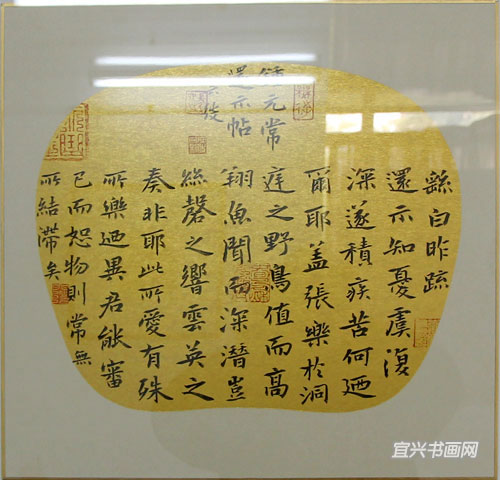 繇白昨疏
還示知憂虞復
深遂積疾苦何廼
爾耶盖張樂於洞
庭之野鳥值而高
翔魚聞而深潛豈
絲磬之響雲英之
奏非耶此所愛有殊
所樂廼異君能審
己而恕物則常無
所結滯矣
鍾元常
還示帖
宜兴书画网